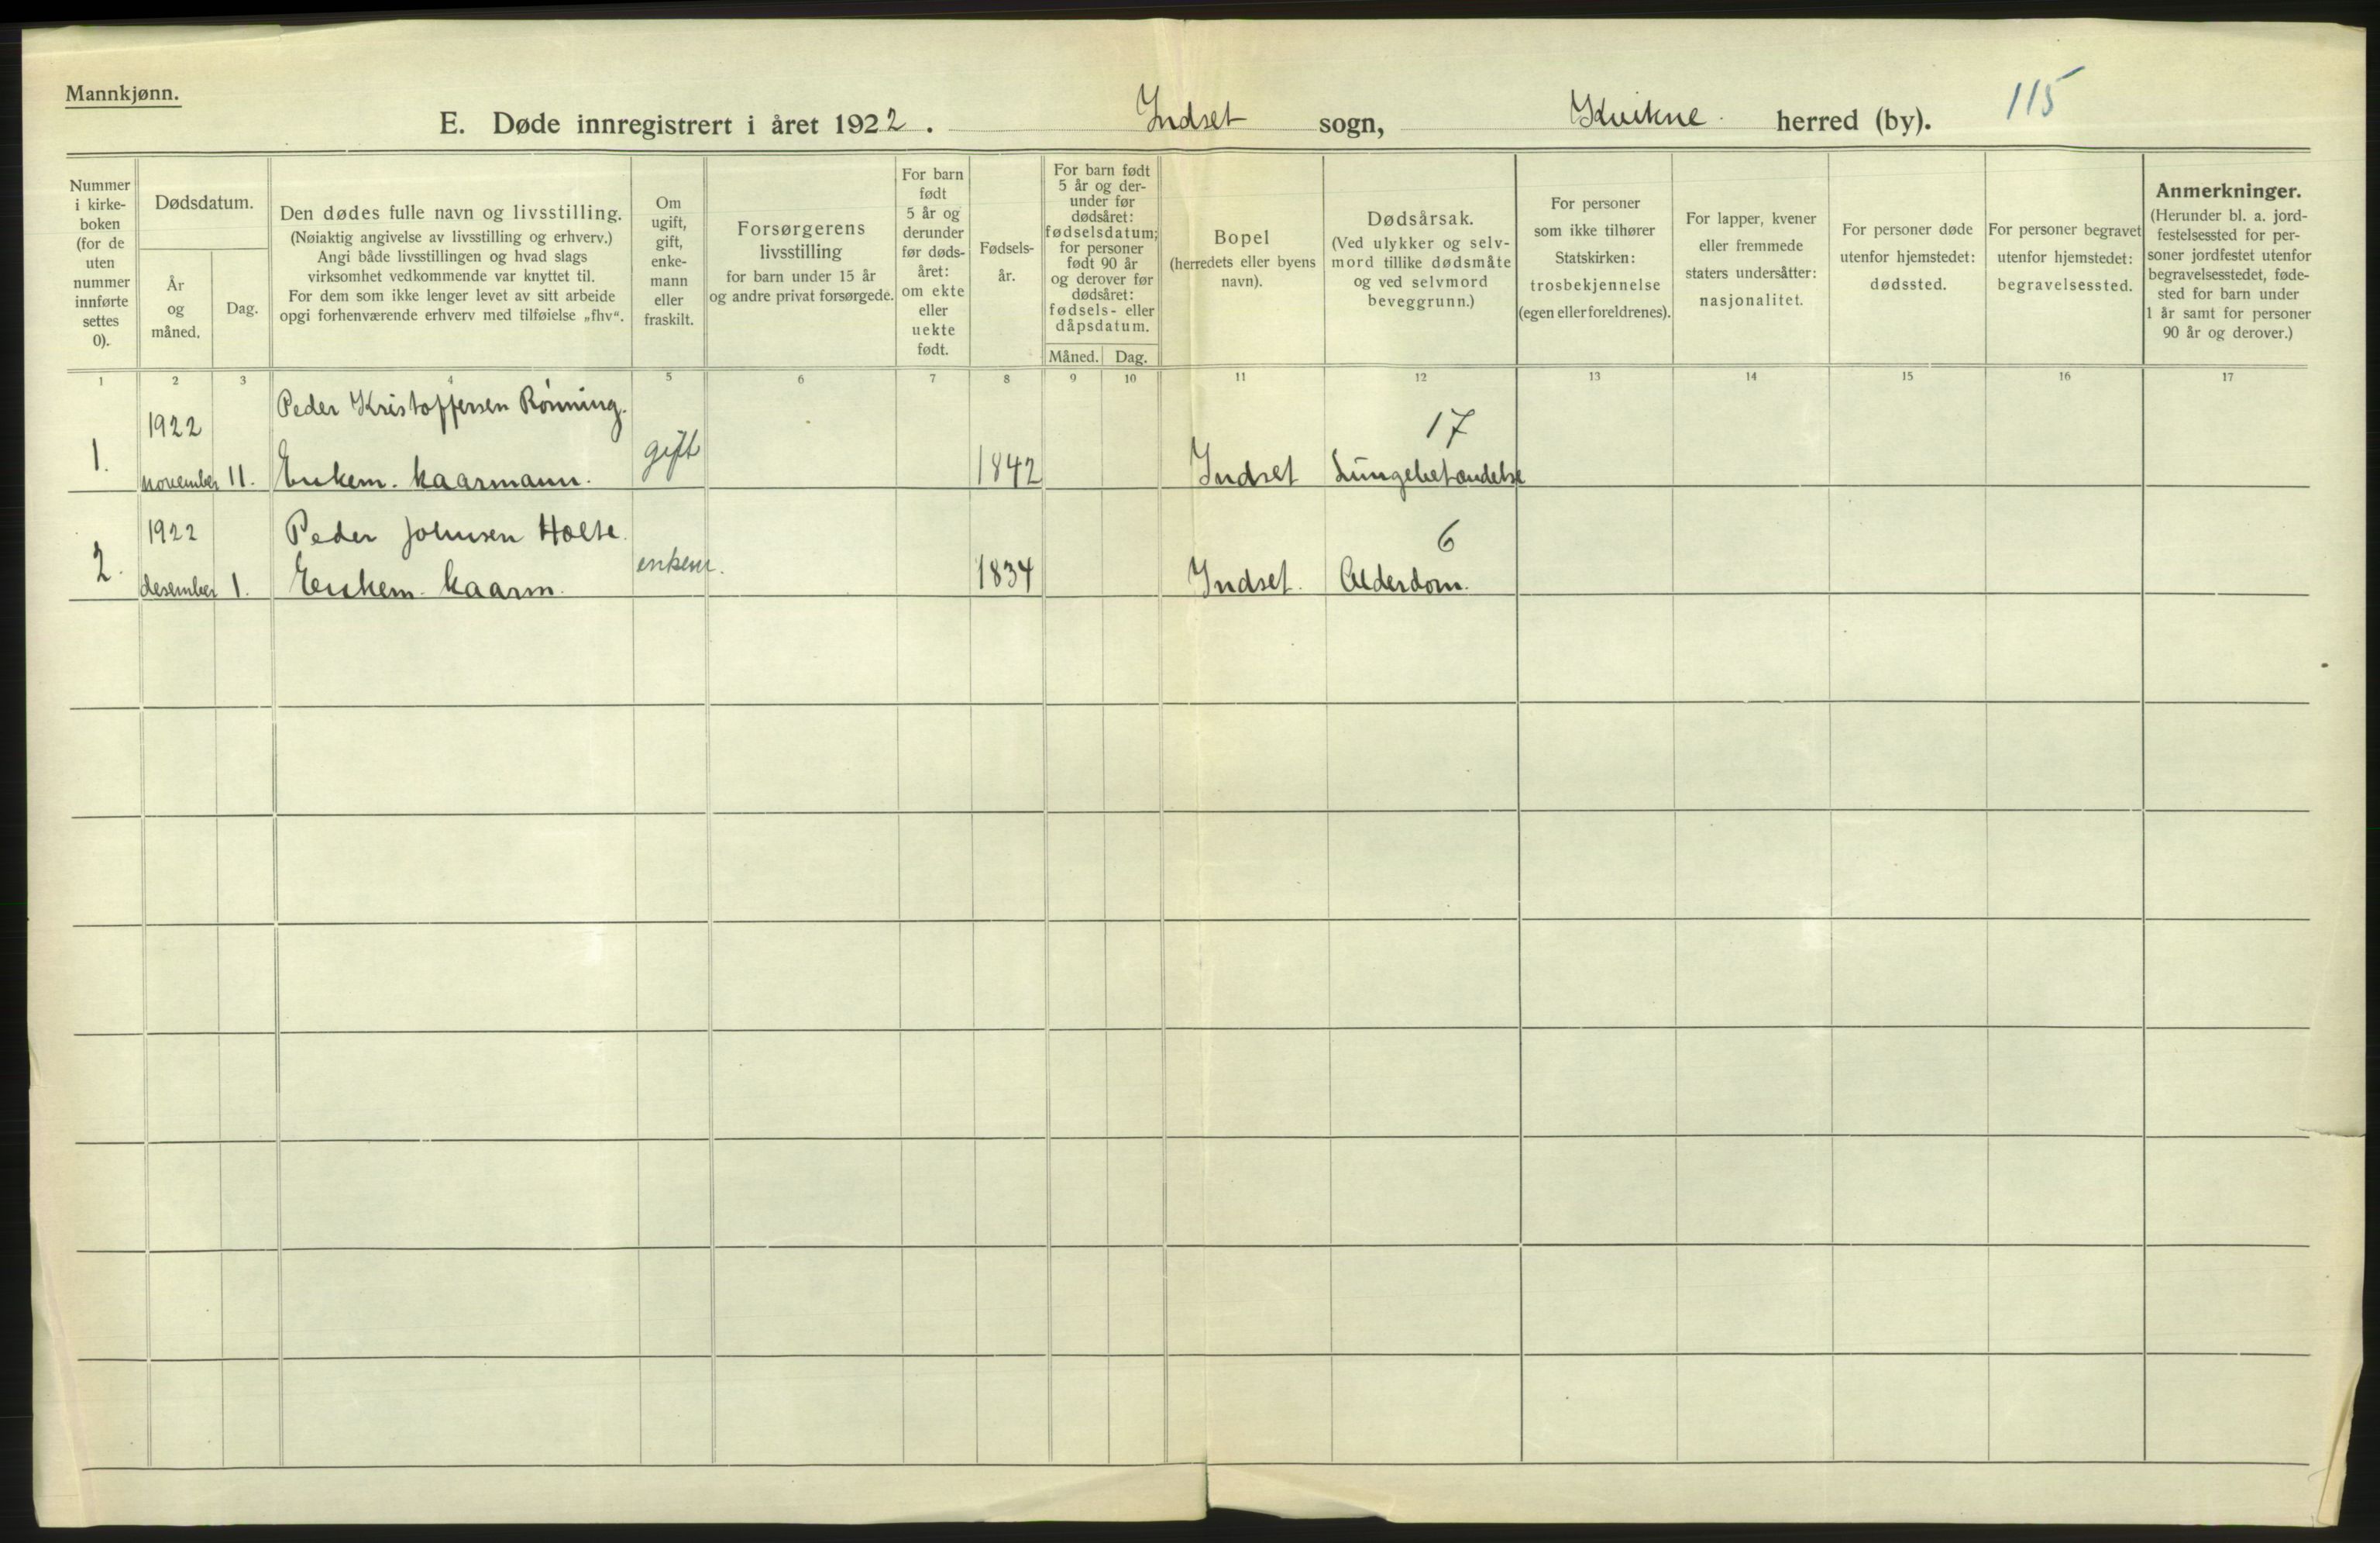 Mannkjønn.
E. Døde innregistrert i året 1922. Indset sogn, Kvikne herred (by). 115
Nummer
i kirke-
boken
(for de
uten
nummer
innførte
settes
0).
Dødsdatum.
År
og
måned.
Dag.
Den dødes fulle navn og livsstilling.
(Nøiaktig angivelse av livsstilling og erhverv.)
Angi både livsstillingen og hvad slags
virksomhet vedkommende var knyttet til.
For dem som ikke lenger levet av sitt arbeide
opgi forhenværende erhverv med tilføielse „fhv“.
Om
ugift,
gift,
enke-
mann
eller
fraskilt.
Forsørgerens
livsstilling
for barn under 15 år
og andre privat forsørgede.
For barn
født
5 år og
derunder
før døds-
året:
om ekte
eller
uekte
født.
Fødsels-
år.
For barn født
5 år og der-
under før
dødsåret:
fødselsdatum;
for personer
født 90 år
og derover før
dødsåret:
fødsels- eller
dåpsdatum.
Måned. Dag.
Bopel
(herredets eller byens
navn).
Dødsårsak.
(Ved ulykker og selv-
mord tillike dødsmåte
og ved selvmord
beveggrunn.)
For personer
som ikke tilhører
Statskirken:
trosbekjennelse
(egen eller foreldrenes).
For lapper, kvener
eller fremmede
staters undersåtter:
nasjonalitet.
For personer døde
utenfor hjemstedet:
dødssted.
For personer begravet
utenfor hjemstedet:
begravelsessted.
Anmerkninger.
(Herunder bl. a. jord-
festelsessted for per-
soner jordfestet utenfor
begravelsesstedet, føde-
sted for barn under
1 år samt for personer
90 år og derover.)
1 2 3 4 5 6 7 8 9 10 11 12 13 14 15 16 17
Peder Kristoffersen Rönning.
1922 17
1. november 11. Enkem. kaarmann. gift 1842 Indset Lungebetændelse
1922 Peder Johnsen Holte. 6
2. desember 1. Enkem. kaarm. enkem. 1834 Indset. Alderdom.